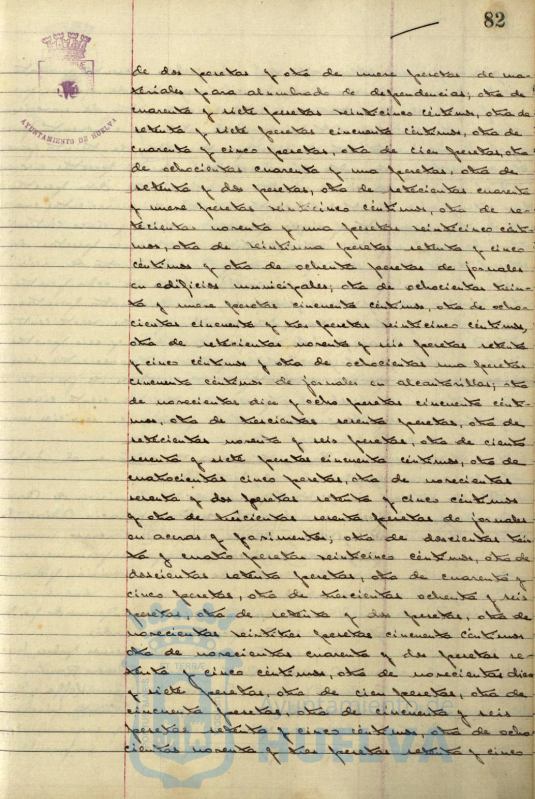 82
AYUNTAMIENTO DE HUELVA
de dos pesetas y otra de nueve pesetas de ma-
teriales para alumbrado de dependencias; otra de
cuarenta y siete pesetas veinticinco céntimos, otra de
setenta y siete pesetas cincuenta céntimos, otra de
cuarenta y cinco pesetas, otra de cien pesetas, otra
de ochocientas cuarenta y una pesetas, otra de
setenta y dos pesetas, otra de setecientas cuarenta
y nueve pesetas veinticinco céntimos, otra de se-
tecientas noventa y una pesetas veinticinco cénti-
mos, otra de veintiuna pesetas setenta y cinco
céntimos y otra de ochenta pesetas de jornales
en edificios municipales; otra de ochocientas trein-
ta y nueve pesetas cincuenta céntimos, otra de ocho-
cientas cincuenta y tres pesetas veinticinco céntimos,
otra de setecientas noventa y seis pesetas setenta
y cinco céntimos y otra de ochocientas una pesetas
cincuenta céntimos de jornales en alcantarillas; otra
de novecientas diez y ocho pesetas cincuenta cénti-
mos, otra de trescientas sesenta pesetas, otra de
setecientas noventa y seis pesetas, otra de ciento
sesenta y siete pesetas cincuenta céntimos, otra de
cuatrocientas cinco pesetas, otra de novecientas
sesenta y dos pesetas setenta y cinco céntimos
y otra de trescientas sesenta pesetas de jornales
en aceras y pavimentos; otra de doscientas trein-
ta y cuatro pesetas veinticinco céntimos, otra de
doscientas setenta pesetas, otra de cuarenta y
cinco pesetas, otra de trescientas ochenta y seis
pesetas, otra de setenta y dos pesetas, otra de
novecientas veintitres pesetas cincuenta céntimos
otra de novecientas cuarenta y dos pesetas se-
tenta y cinco céntimos, otra de novecientas diez
y siete pesetas, otra de cien pesetas, otra de
cincuenta pesetas, otra de cincuenta y seis
pesetas setenta y cinco céntimos, otra de ocho-
cientas noventa y tres pesetas setenta y cinco
Ayuntamiento de
HUELVA